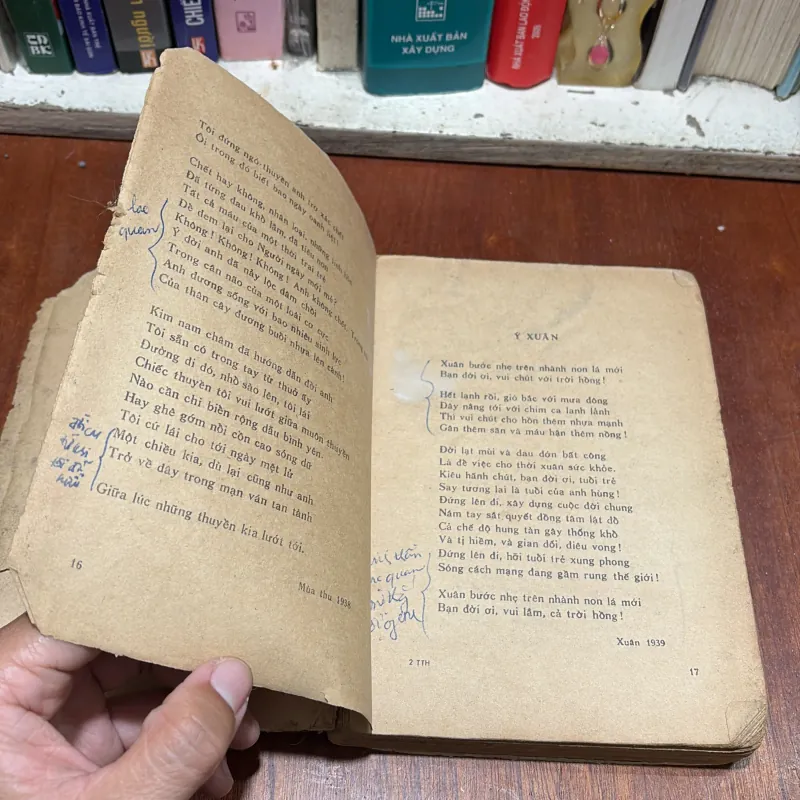 CHIẾ
NHÀ XUẤT BẢN
XÂY DỰNG
NHÀ XUẤT BẢN LAO ĐỘNG
2005
Tôi đứng ngó thuyền anh trơ xác, chết
Ôi trong đó biết bao ngày oanh liệt!
Chết hay không, nhân loại, những linh hồn
Đã từng đau khổ lắm, đã tiêu son
Tất cả máu của một thời trai trẻ
Để đem lại cho Người ngày mới mẻ?
Không! Không! Không! Anh không chết. Trong
Ý đời anh đã nảy lộc đâm chồi
Trong cân não của một loài cơ cực
Anh đương sống với bao nhiêu sinh lực
Của thân cây đương buổi nhựa lên cành!
lạc
quan
Kim nam châm đã hướng dẫn đời anh
Tôi sẵn có trong tay từ thuở ấy
Đường đi đó, nhổ sào lên, tôi lái
Chiếc thuyền tôi vui lướt giữa muôn thuyền
Nào cần chi biển rộng dẫu bình yên.
Hay ghê gớm nổi cồn cao sóng dữ
Tôi cứ lái cho tới ngày mệt lử
Một chiều kia, dù lại cũng như anh
Trở về đây trong mạn ván tan tành
Giữa lúc những thuyền kia lướt tới.
16
Mùa thu 1938
Ý XUÂN
Xuân bước nhẹ trên nhành non lá mới
Bạn đời ơi, vui chút với trời hồng!
Hết lạnh rồi, gió bấc với mưa đông
Đây nắng tới với chim ca lanh lảnh
Thì vui chút cho hồn thêm nhựa mạnh
Gân thêm săn và máu hận thêm nồng!
Đời lạt mùi và đau đớn bất công
Là để việc cho thời xuân sức khỏe.
Kiêu hãnh chút, bạn đời ơi, tuổi trẻ
Say tương lai là tuổi của anh hùng!
Đứng lên đi, xây dựng cuộc đời chung
Nắm tay sắt quyết đồng tâm lật đổ
Cả chế độ hung tàn gây thống khổ
Và tị hiềm, và gian dối, diêu vong!
Đứng lên đi, hỡi tuổi trẻ xung phong
Sóng cách mạng đang gầm rung thế giới!
quan
Xuân bước nhẹ trên nhành non lá mới
Bạn đời ơi, vui lắm, cả trời hồng!
Xuân 1939
2 TTH
17